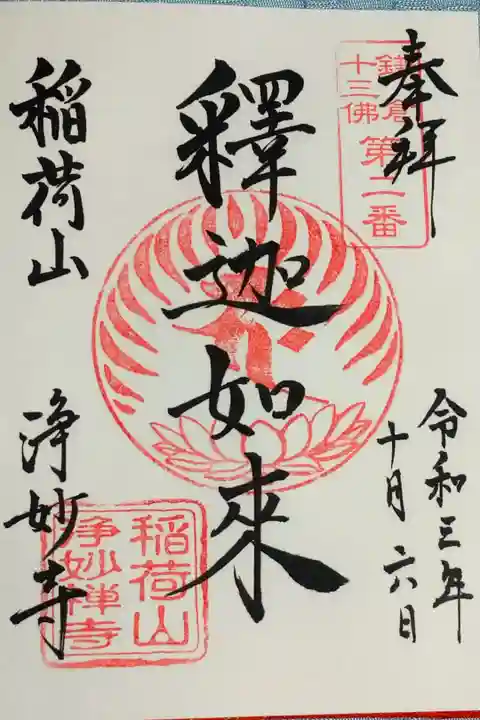 奉拝
鎌倉
十三佛
第二番
釋迦如來
令和三年
十月六日
稲荷山
浄妙寺
稲荷山
浄妙禅寺